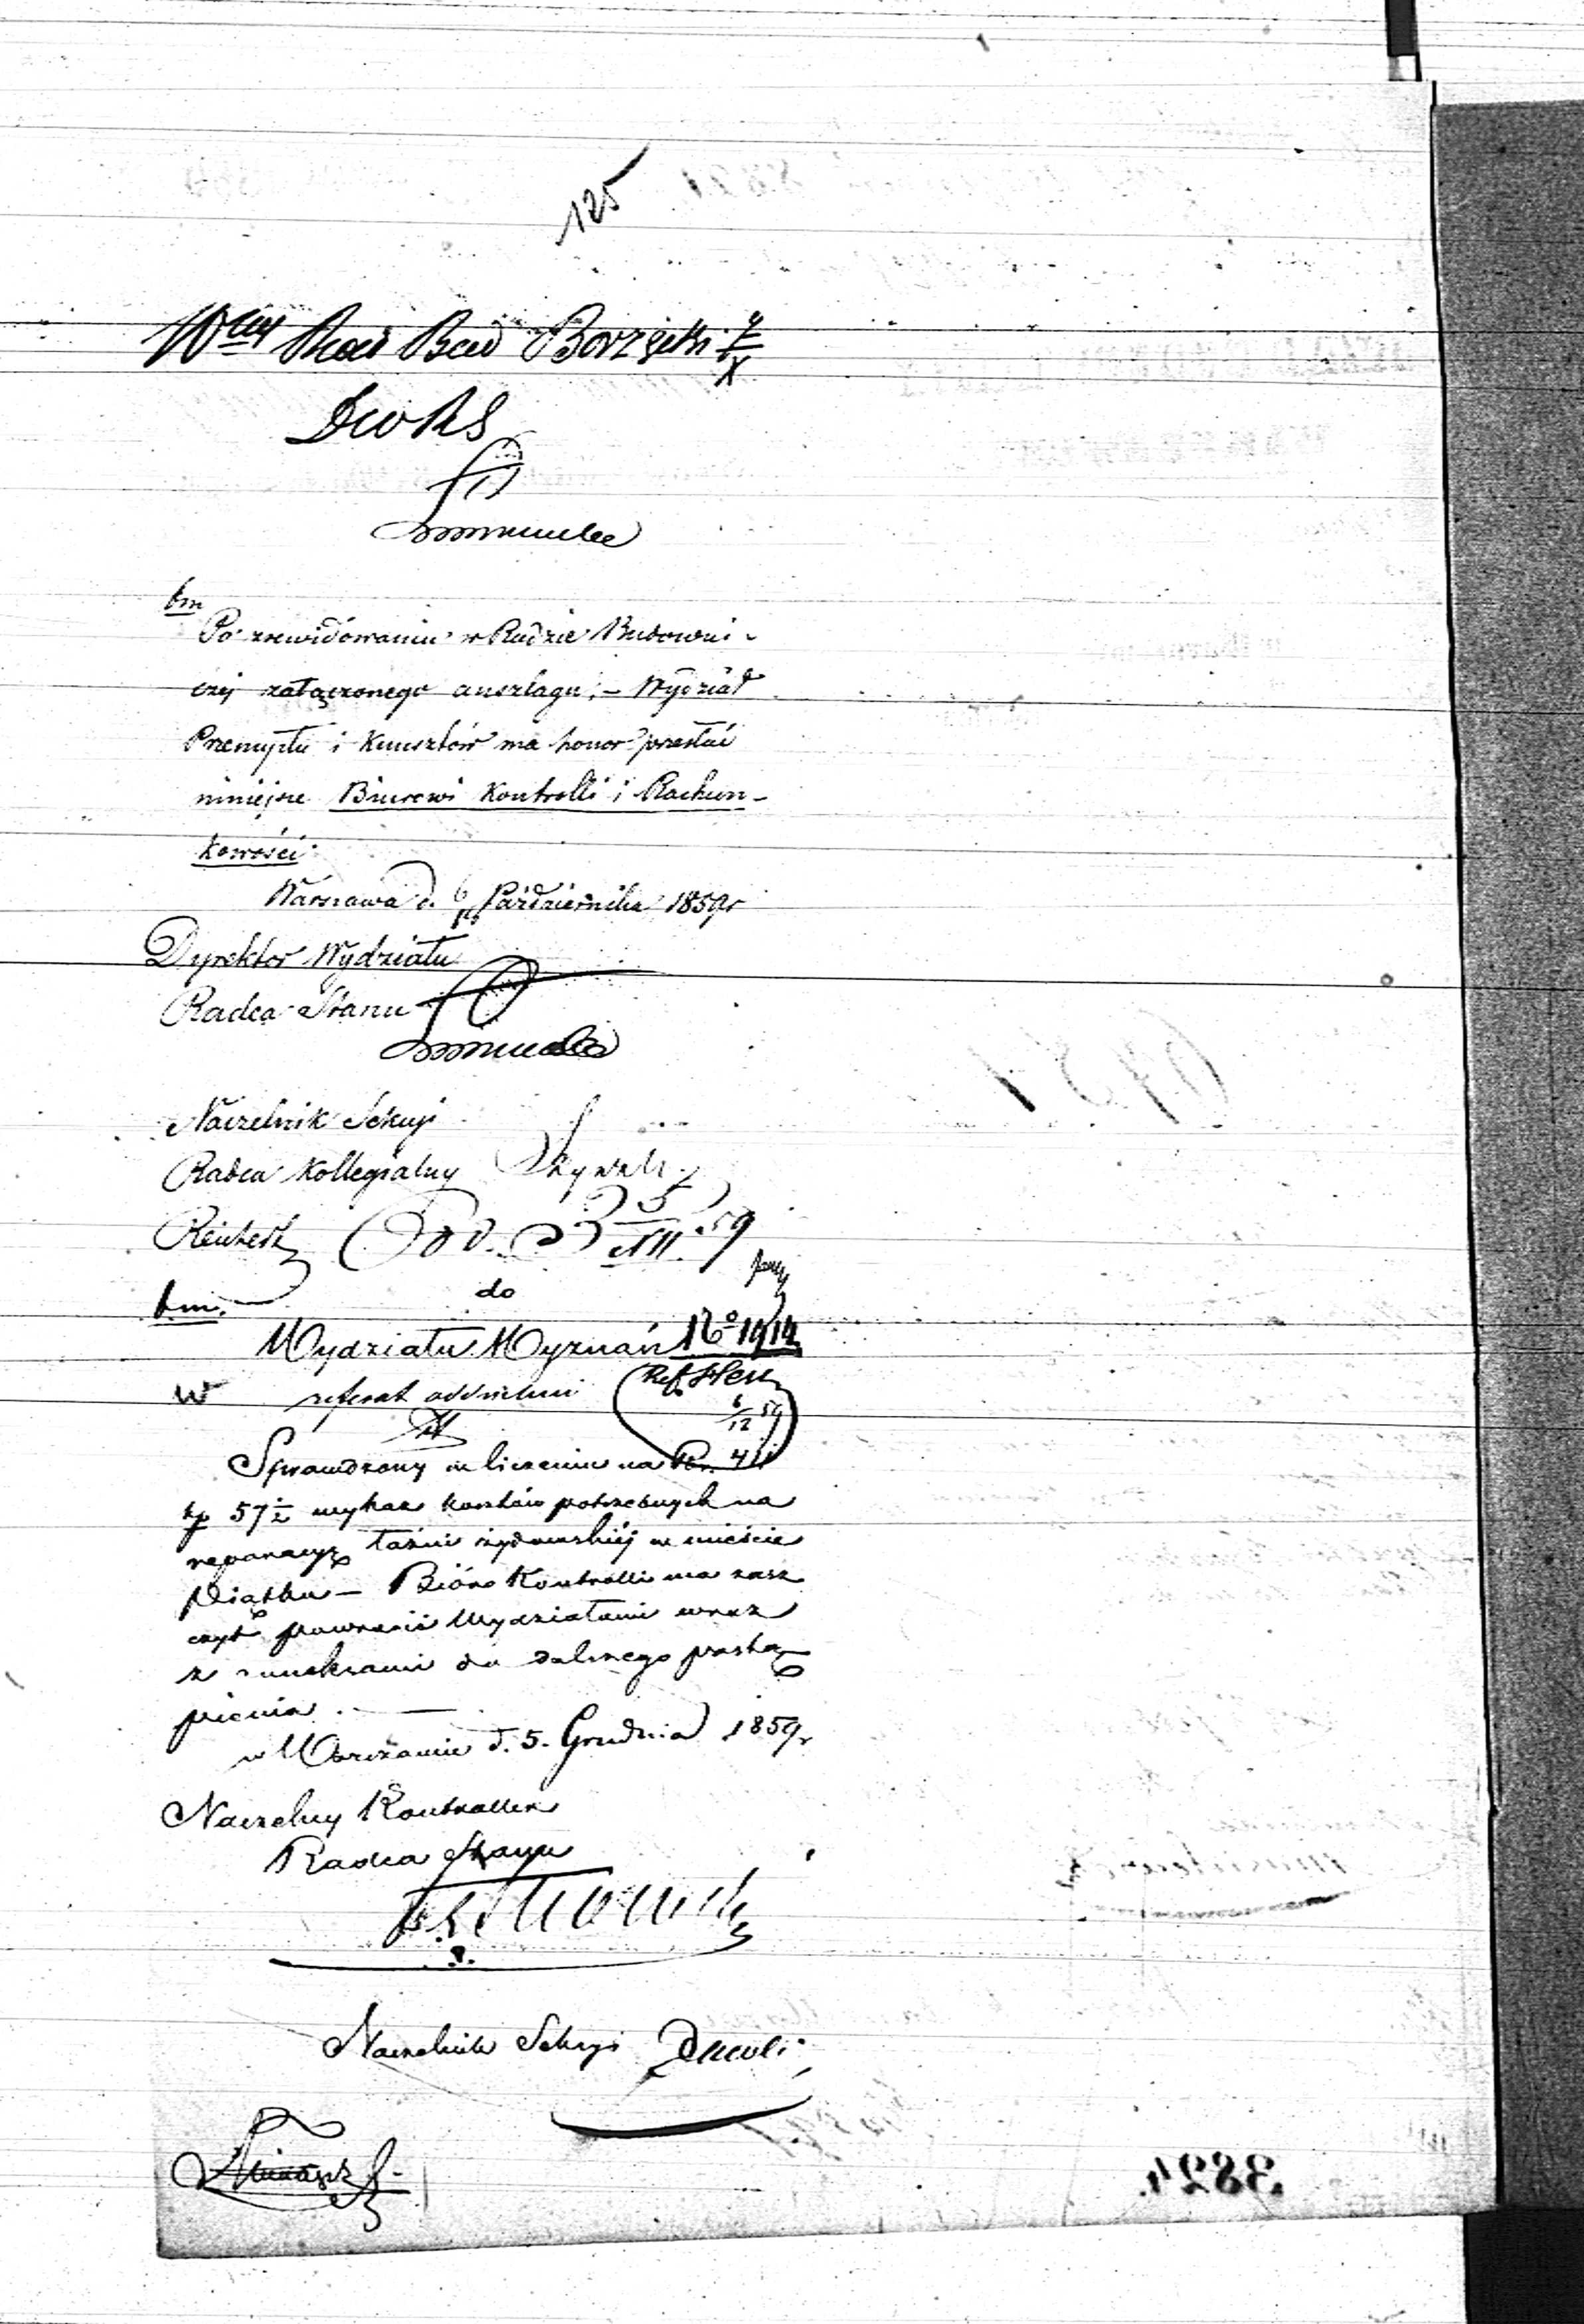 125
Wny Rad Bud Borzęcki 4/X
bm
Po zrewidowaniu w Radzie Budowni-
czej załączonego anszlagu, – Wydział
Przemysłu i Kunsztów ma honor przesłać
niniejsze Biurowi Kontrolli i Rachun-
kowości
Warszawa d. 6 Października 1859 r
Dyrektor Wydziału
Radca Stanu
Naczelnik Sekcyi
Radca Kollegialny
Reichert
5/XII 59
bm.
do
Wydziału Wyznań No 1914
w referat
Ref. Hess
6/12 59
Sprawdzony w liczeniu na Rs. 411
kp 57½ wykaz kosztów potrzebnych na
reparacyę łaźni żydowskiéj w mieście
Piątku – Bióro Kontrolli ma zasz
czyt powrócić Wydziałowi wraz
z do dalszego postą
pienia. —
w Warszawie d. 5. Grudnia 1859 r
Naczelny Kontroller
Radca Stanu
Naczelnik Sekcyi
3824